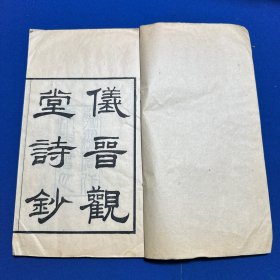 儀晉觀
堂詩鈔